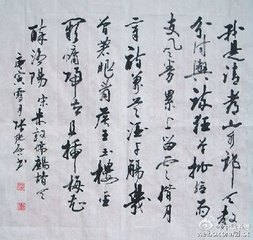 我是清都山水郎天教
分付與疏狂曾批給雨
支風券累上留雲借月
章詩萬首酒千觴幾
曾著眼看侯王玉樓金
闕慵歸去且插梅花
醉洛陽 宋朱敦儒鷓鴣天
庚寅雪月